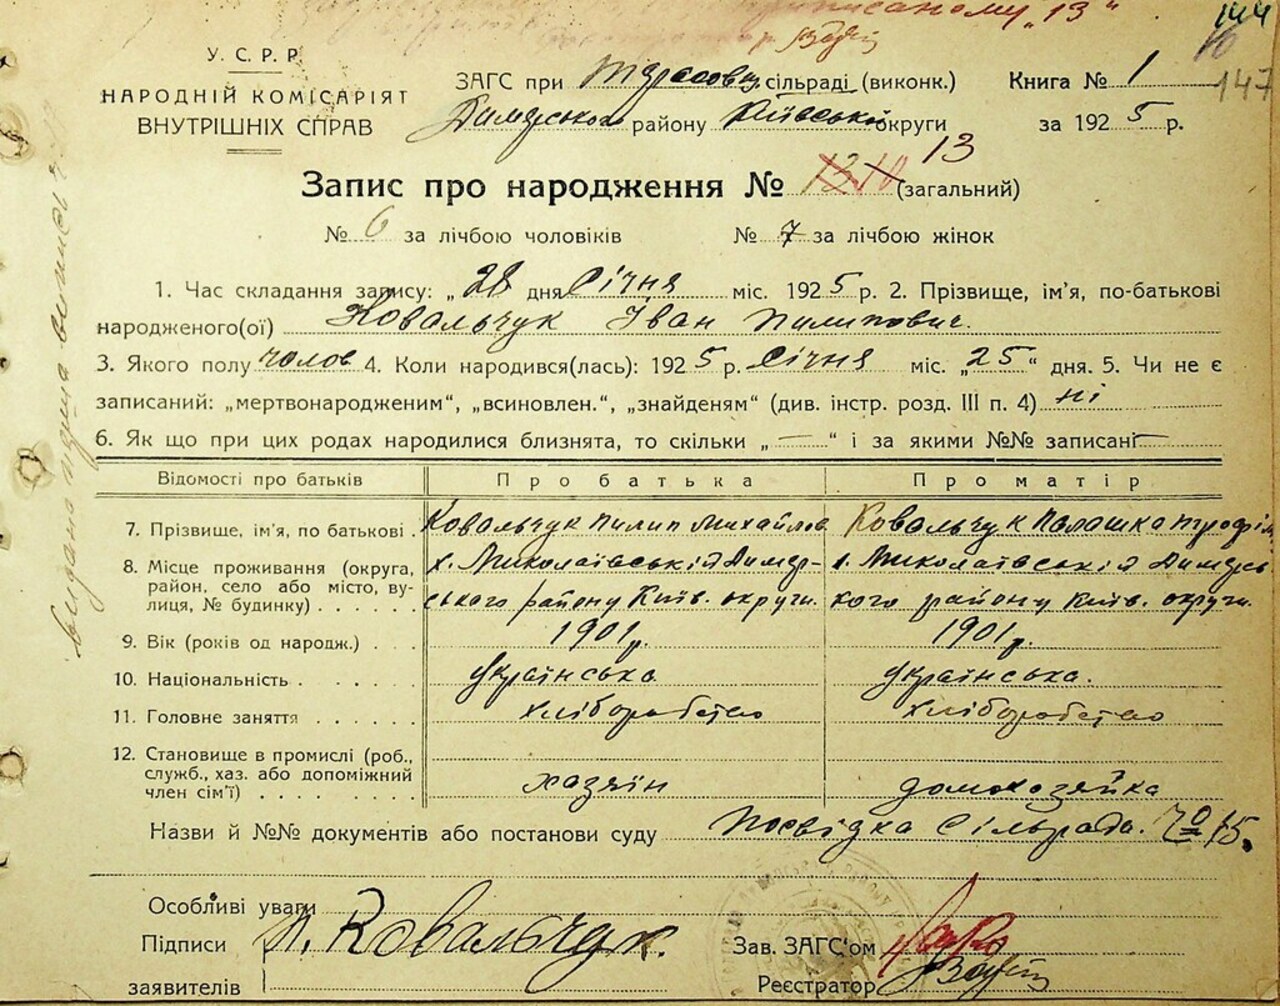 писаному "13"
144
10
147
У. С. Р. Р.
НАРОДНІЙ КОМІСАРІЯТ
ВНУТРІШНІХ СПРАВ
ЗАГС при сільраді (виконк.)
Книга № 1
Димерського району Київської округи
за 1925 р.
Запис про народження № 13 10 13 (загальний)
№ 6 за лічбою чоловіків № 7 за лічбою жінок
1. Час складання запису: „28 дня Січня міс. 1925 р. 2. Прізвище, ім'я, по-батькові
народженого(ої) Ковальчук Іван Пилипович.
3. Якого полу чолов 4. Коли народився(лась): 1925 р. Січня міс. „25“ дня. 5. Чи не є
записаний: „мертвонародженим“, „всиновлен.“, „знайденям“ (див. інстр. розд. III п. 4) ні
6. Як що при цих родах народилися близнята, то скільки „—“ і за якими №№ записані —
Відомості про батьків Про батька Про матір
7. Прізвище, ім'я, по батькові . Ковальчук Пилип Михайлов Ковальчук Палашка Трофім
8. Місце проживання (округа, х. Миколаївській Димер- х. Миколаївській Димерсь
район, село або місто, ву-
лиця, № будинку) . . . . . . ського району Київ. округи. кого району Київ. округи.
9. Вік (років од народж.) . . . 1901 р. 1901 р.
10. Національність . . . . . . українська українська.
11. Головне заняття . . . . . . хліборобство хліборобство
12. Становище в промислі (роб.,
служб., хаз. або допоміжний
член сім'ї) . . . . . . . . . хазяін домохозяйка
Назви й №№ документів або постанови суду Посвідка Сільради. 70/15.
Особливі уваги
Підписи П. Ковальчук.
заявителів
Зав. ЗАГС'ом
Реєстратор